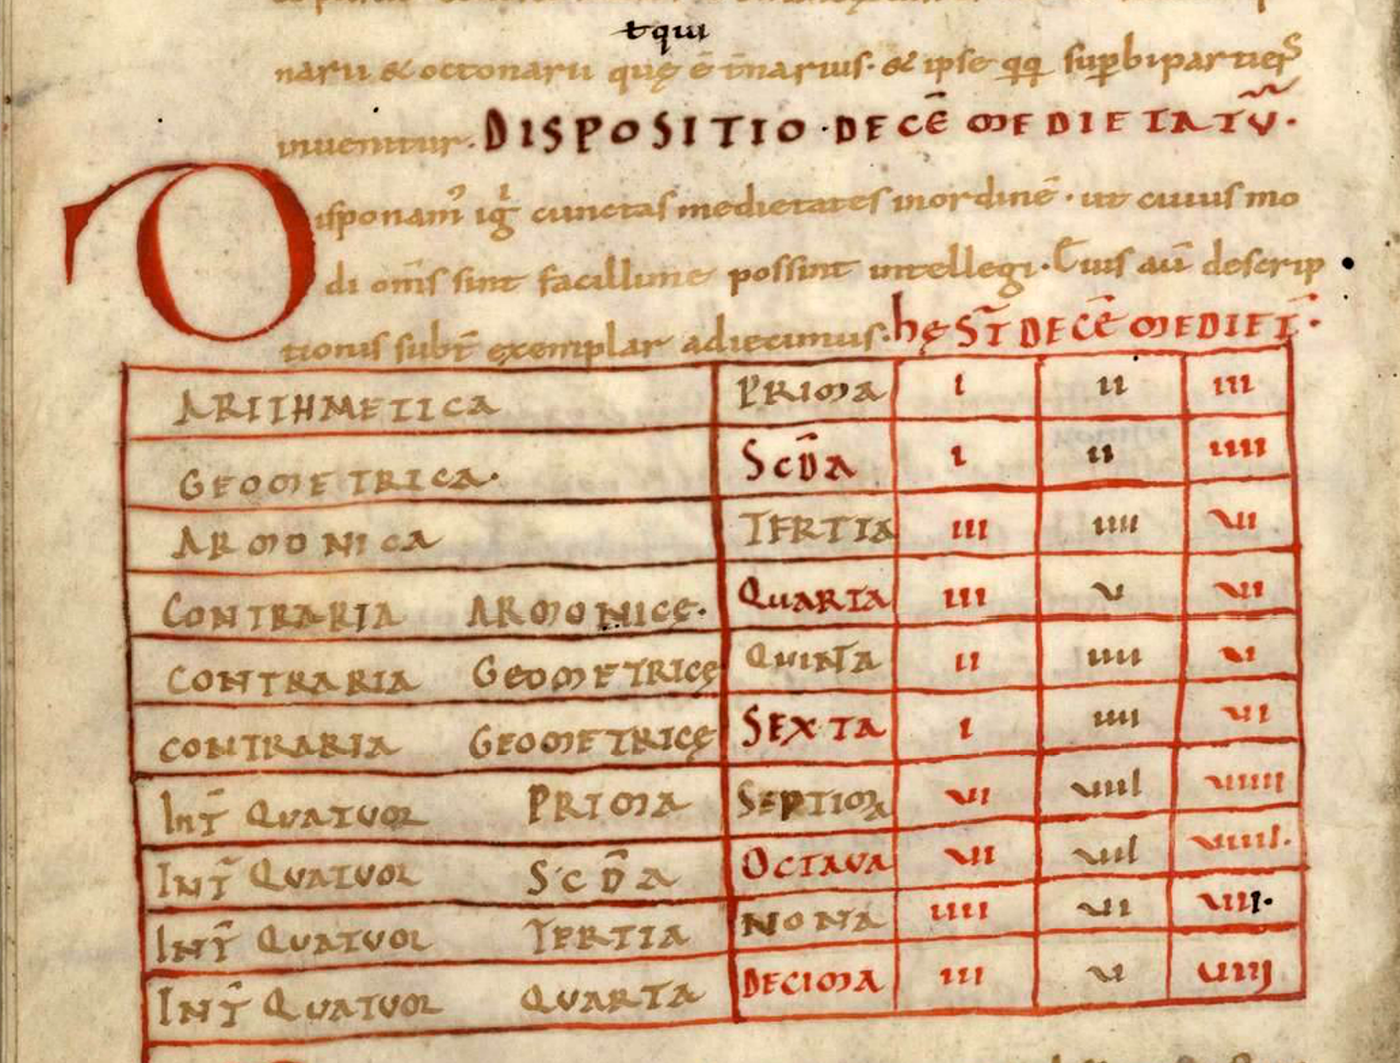 tqui
narū & octonarū quę ē t̄narius· & ipse qq̨ sup̄bipartiens
inuenitur. DISPOSITIO · DECĒ MEDIETATŪ.
Disponam' ig̃ cunctas medietates inordinē · ut cuius mo
di om̄s sint facillime possint intellegi. Cuius aū descrip
tionis subt̄ exemplar adiecimus. hę ST̄ DECĒ MEDIET̄.
ARITHMETICA PRIMA I II III
GEOMETRICA. SCD̄A I II IIII
ARMONICA TERTIA III IIII VI
CONTRARIA ARMONICĘ. QUARTA III V VI
CONTRARIA GEOMETRICĘ QUINTA II IIII VI
CONTRARIA GEOMETRICĘ SEXTA I IIII VI
INT̄ QUATUOR PRIMA SEPTIMA VI VIII VIIII
INT̄ QUATUOR SCD̄A OCTAVA VII VIII VIIII.
INT̄ QUATUOR TERTIA NONA IIII VII VIII.
INT̄ QUATUOR QUARTA DECIMA III V VIIJ